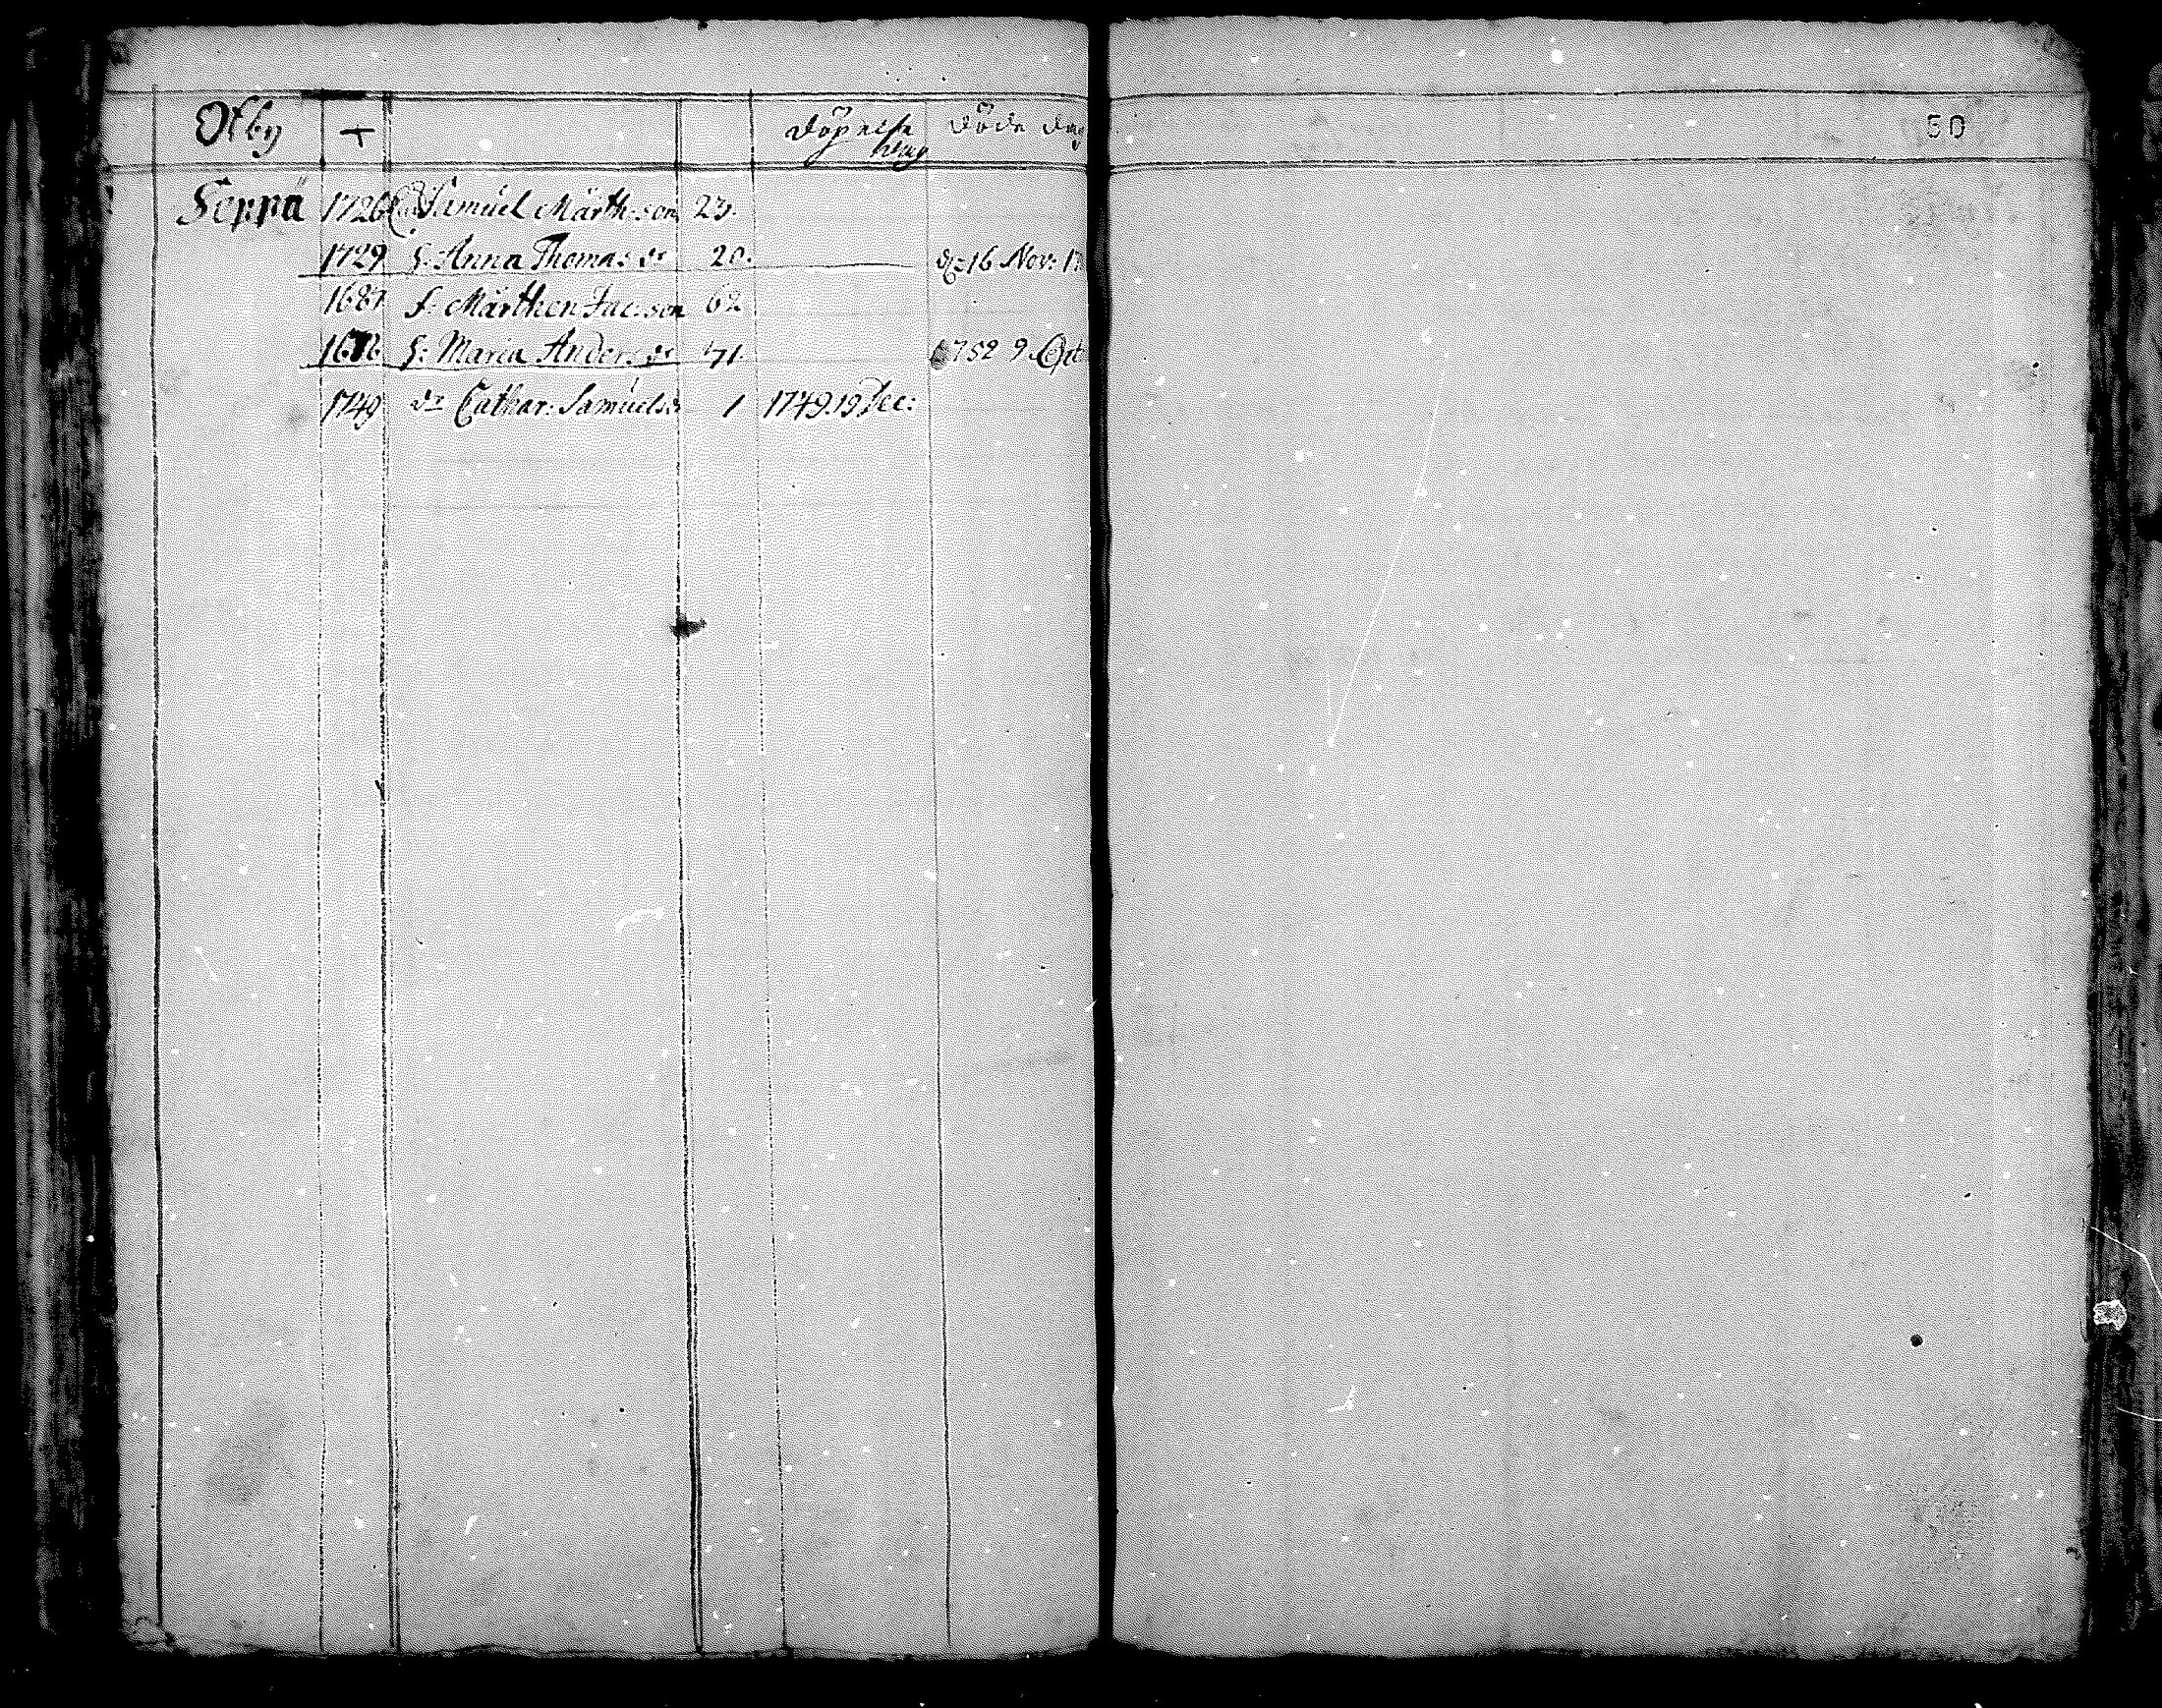 Otby + Döpelse dag Döde dag 50
Seppä 1726 Samuel Märth:son 23.
1729 h: Anna Thomas dr 20. d: 16 Nov: 17
1687 f: Märthen Jac:son 62
h: Maria Anders dr 71. 1752 9 Oct
1749 dr Cathar: Samuels dr 1 1749. 19 Dec: